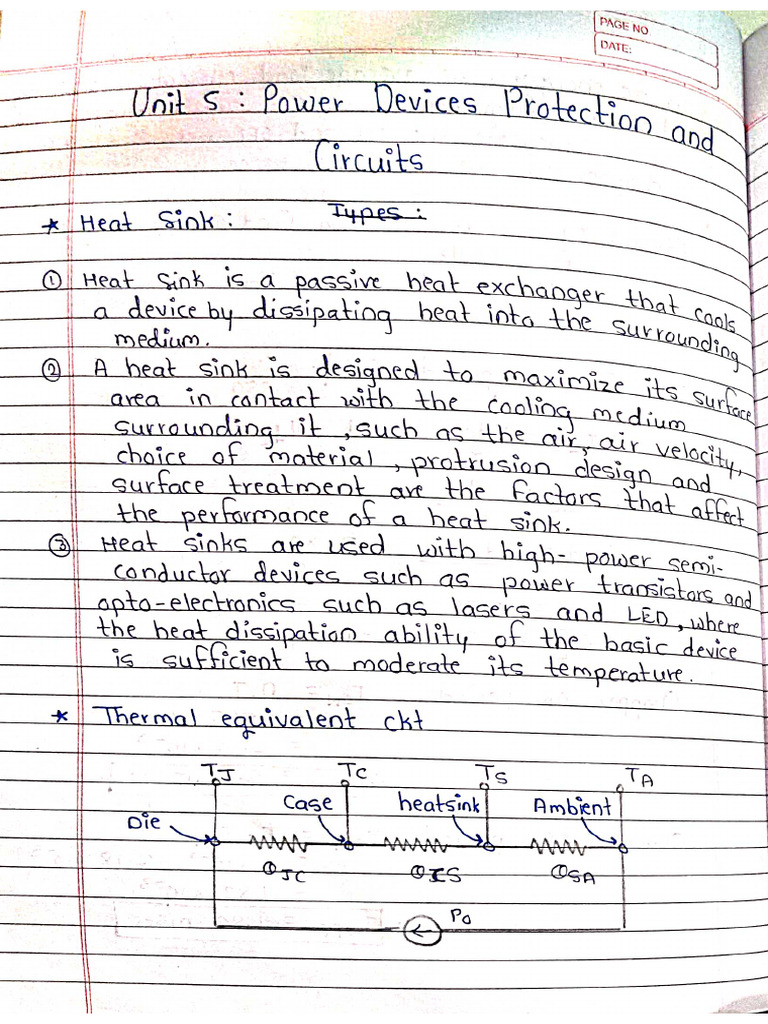 PAGE NO
DATE:
Unit 5 : Power Devices Protection and
Circuits
* Heat Sink : Types :
① Heat sink is a passive heat exchanger that cools
a device by dissipating heat into the surrounding
medium.
② A heat sink is designed to maximize its surface
area in contact with the cooling medium
surrounding it, such as the air, air velocity,
choice of material, protrusion design and
surface treatment are the factors that affect
the performance of a heat sink.
③ Heat sinks are used with high-power semi-
conductor devices such as power transistors and
opto-electronics such as lasers and LED, where
the heat dissipation ability of the basic device
is sufficient to moderate its temperature.
* Thermal equivalent ckt
TJ TC TS TA
Case heatsink Ambient
Die
θJC θCS θSA
PD